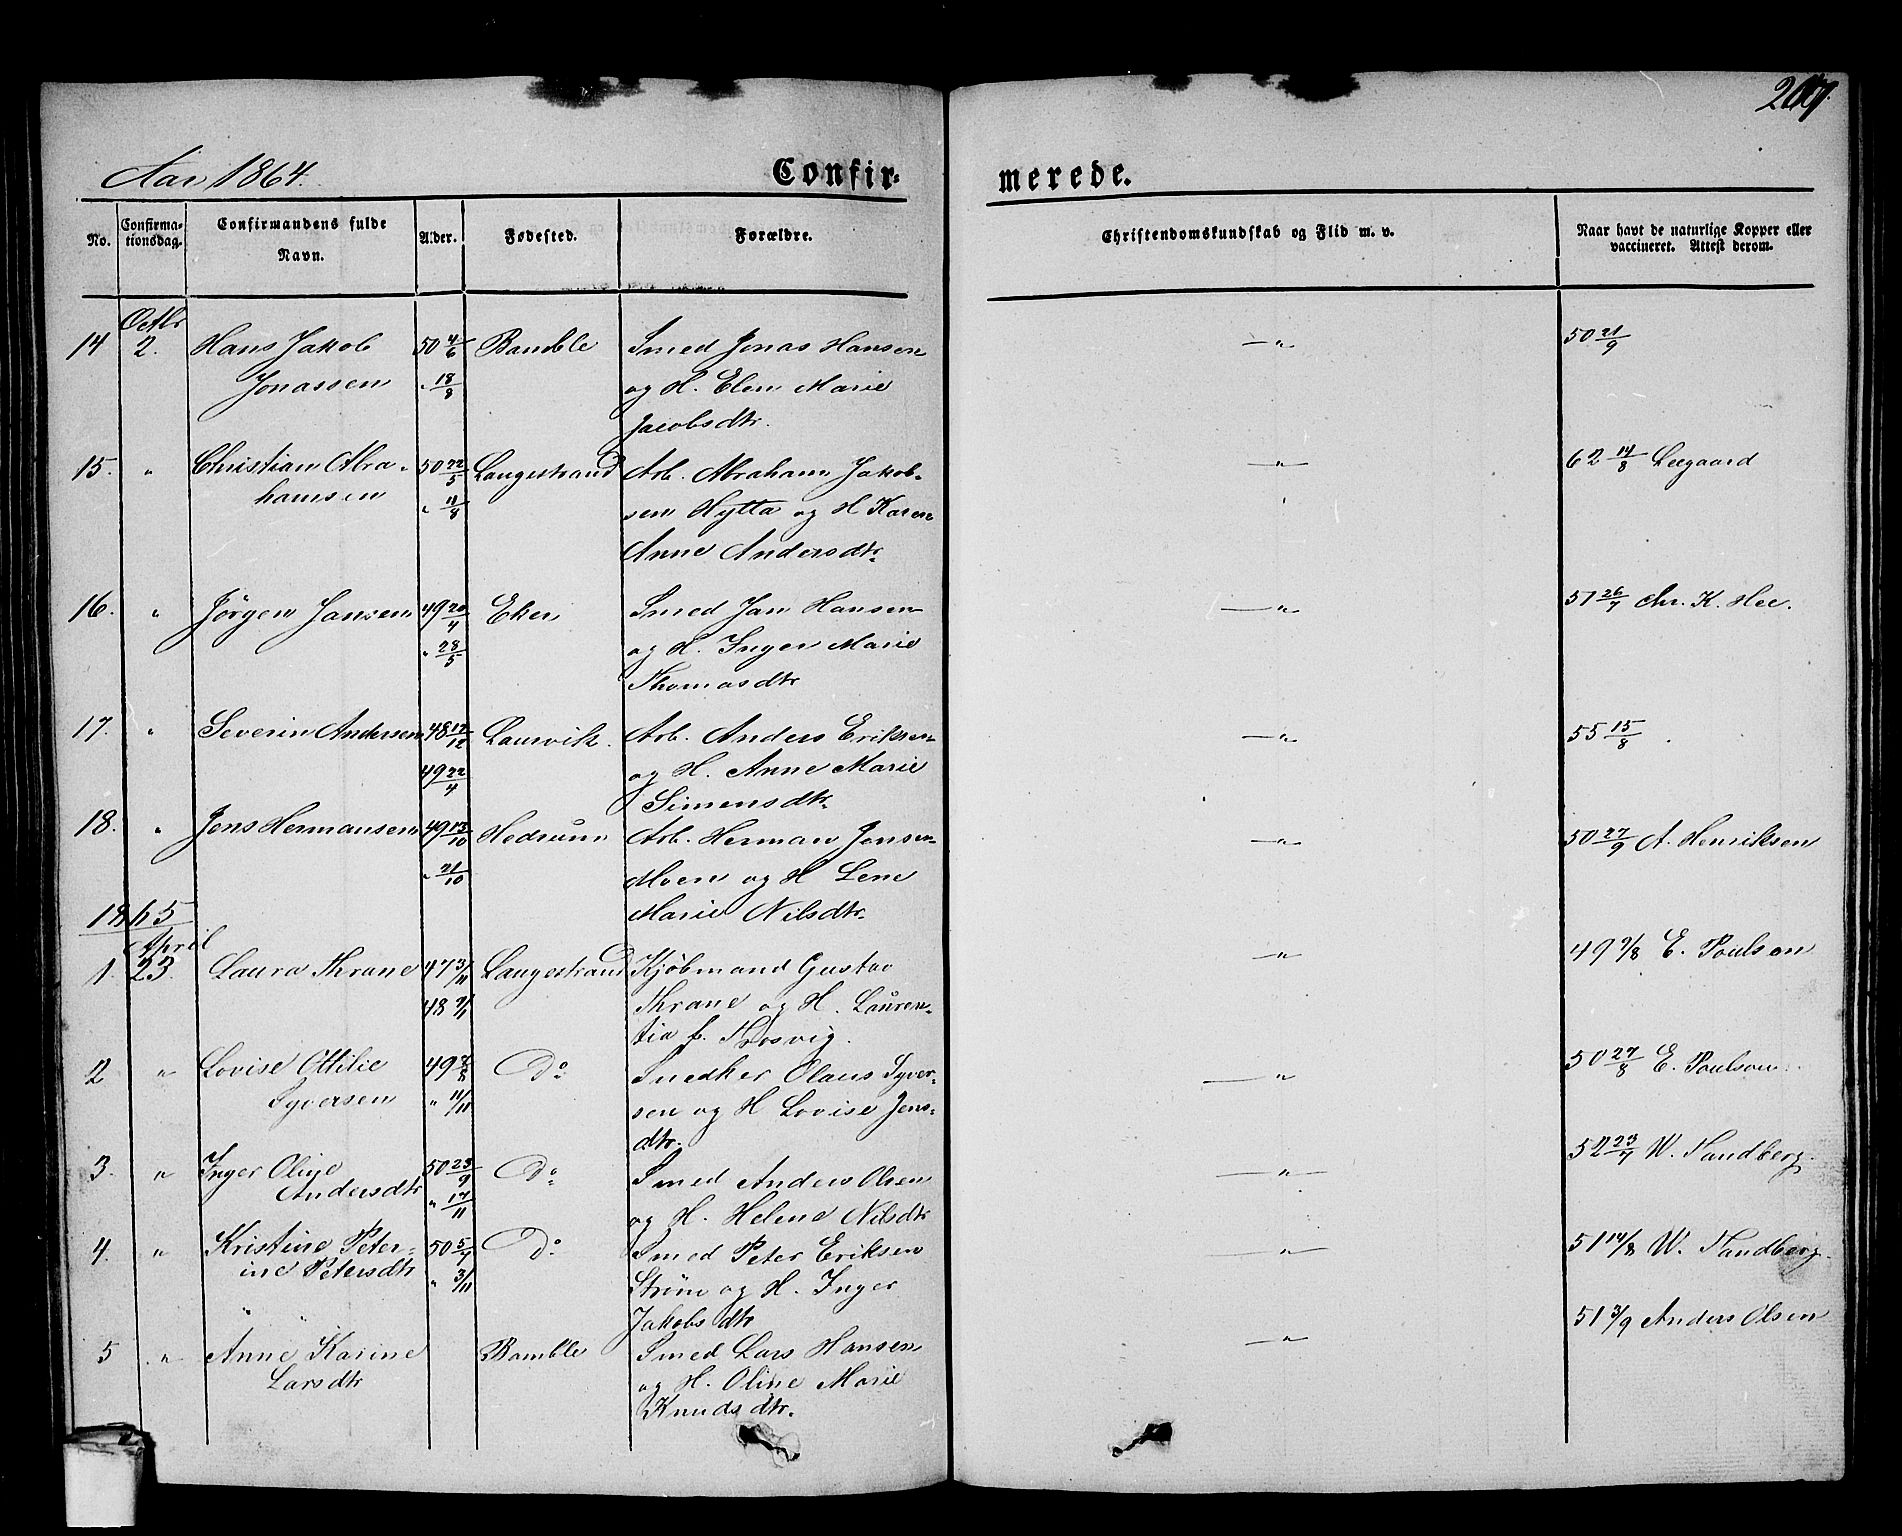 Aar 1864.
Confirmerede.
No.
Confirmationsdag.
Confirmandens fulde
Navn.
Alder.
Fødested.
Forældre.
Christendomskundskab og Flid m. v.
Naar havt de naturlige Kopper eller
vaccineret. Attest derom.
Octbr
14 2. Hans Jakob 50 4/6 Bamble Smed Jonas Hansen — " — 50 21/9
Jonassen " 18/8 og H. Elen Marie
Jacobsdtr.
15. " Christian Abra- 50 22/5 Langestrand Arb. Abraham Jakob- — " — 62 14/8 Leegaard
hamsen " 11/8 sen Hytta og H Karen
Anne Andersdtr.
16. " Jørgen Jansen 49 20/4 Eker Smed Jan Hansen — " — 51 26/7 Chr. K. Hee.
" 28/5 og H. Inger Marie
Thomasdtr
17. " Severin Andersen 48 12/12 Laurvik. Arb. Anders Eriksen — " — 55 15/8
49 22/4 og H. Anne Marie
Simensdtr.
18. " Jens Hermansen 49 13/10 Hedrum Arb. Herman Jensen — " — 50 27/9 A. Henriksen
" 21/10 Moen og H Lene
Marie Nilsdtr.
1865
April
1. 23. Laura Thrane 47 3/11 Langestrand Kjøbmand Gustav — " — 49 7/8 E. Poulson
48 9/1 Thrane og H. Lauren-
tia f.
2 " Lovise Ottilie 49 Do Snedker Olaus Syver- — " — 50 27/8 E. Poulson
Syversen " 11/11 sen og H Lovise Jens-
dtr.
3. " Inger Oline 50 23/9 Do Smed Anders Olsen — " — 52 23/7 W. Sandberg.
Andersdtr " 17/11 og H. Helene Nilsdtr
4. " Kristine Peter- 50 5/7 Do Smed Peter Eriksen — " — 51 14/8 W. Sandberg.
ine Petersdtr " 3/11 Strøm og H. Inger
Jakobsdtr
5 " Anne Karine Bamble Smed Lars Hansen — " — 51 3/9 Anders Olsen
Larsdtr og H. Oline Marie
Knudsdtr.